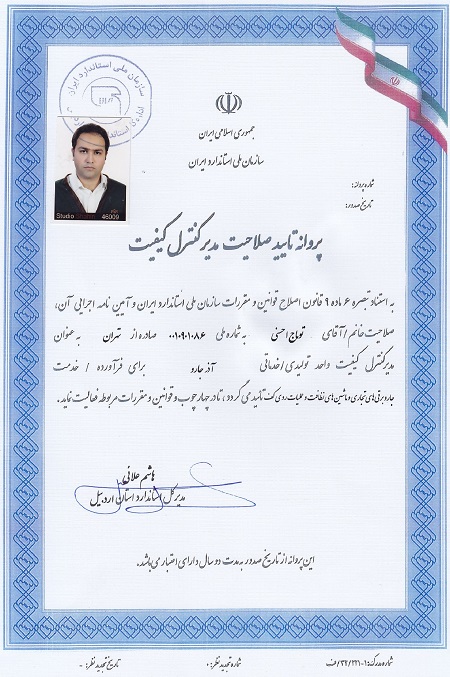 سازمان ملی استاندارد ایران
Studio 46009
جمهوری اسلامی ایران
سازمان ملی استاندارد ایران
شماره پروانه:
تاریخ صدور:
پروانه تایید صلاحیت مدیر کنترل کیفیت
به استناد تبصره ۶ ماده ۹ قانون اصلاح قوانین و مقررات سازمان ملی استاندارد ایران و آیین نامه اجرایی آن،
صلاحیت خانم / آقای توماج احسنی به شماره ملی ۰۰۱۰۹۰۱۰۸۶ صادره از تهران به عنوان
مدیر کنترل کیفیت واحد تولیدی/خدماتی آذر جارو برای فرآورده / خدمت
جاروبرقی‌های تجاری و ماشین‌های نظافت و عملیات روی کف تائید می گردد، تا در چهارچوب و قوانین و مقررات مربوطه فعالیت نماید.
هاشم علائی
مدیر کل استاندارد استان اردبیل
این پروانه از تاریخ صدور به مدت دو سال دارای اعتبار می باشد.
شماره مدرک: ف/۳۲/۲۲۱-۱
شماره تجدید نظر: ۰
تاریخ تجدید نظر: -